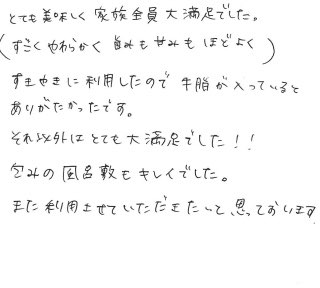 とても美味しく家族全員大満足でした。
(すごくやわらかく 旨みも甘みもほどよく)
すきやきに利用したので 牛脂が入っていると
ありがたかったです。
それ以外はとても大満足でした!!
包みの風呂敷もキレイでした。
また利用させていただきたいって思っております